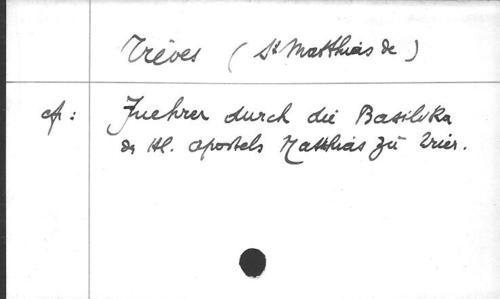 Trèves ( St Matthias de )
cfr : Fuehrer durch die Basilika
des Hl. Apostels Matthias zu Trier.